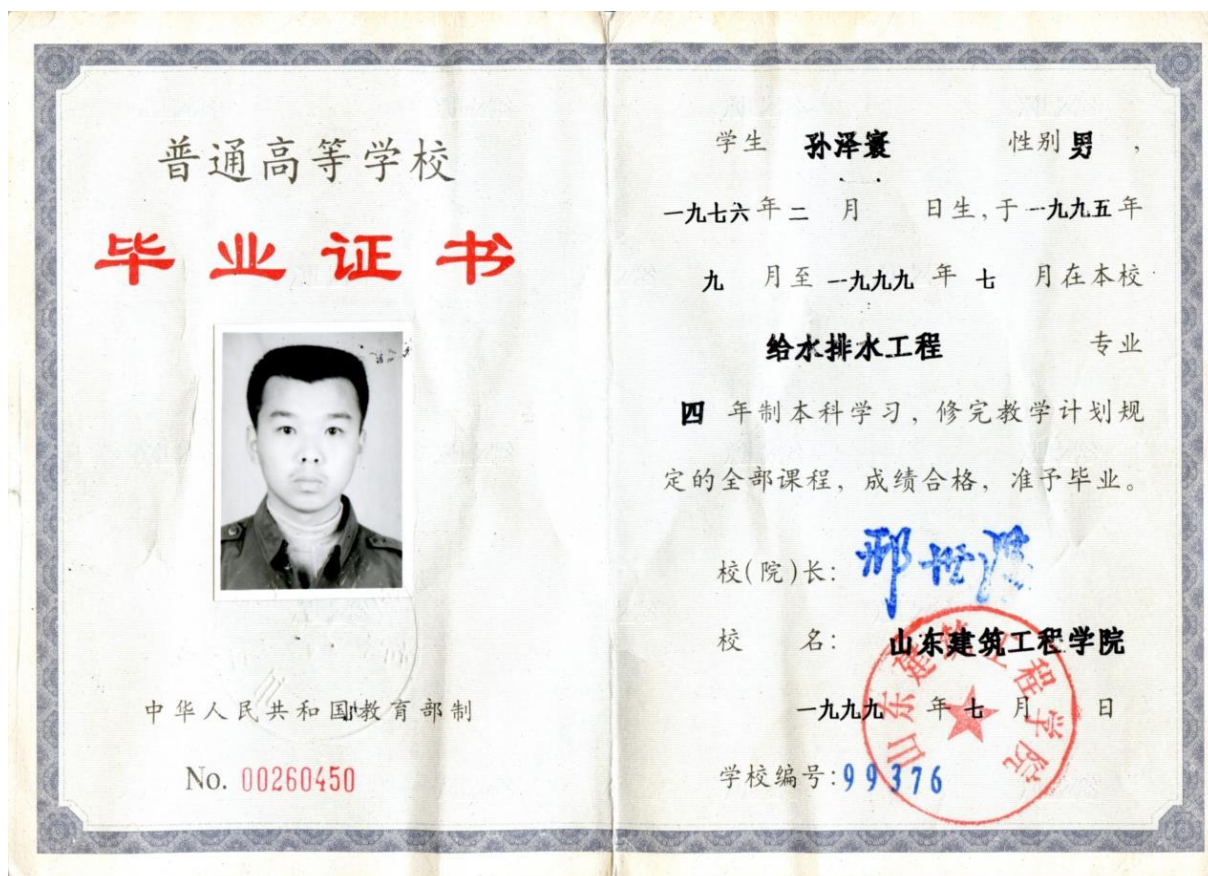 普通高等学校
毕业证书
中华人民共和国教育部制
No. 00260450
学生 孙泽寰 性别 男 ,
一九七六 年 二 月 日生,于 一九九五 年
九 月至 一九九九 年 七 月在本校
给水排水工程 专业
四 年制本科学习，修完教学计划规
定的全部课程，成绩合格，准予毕业。
校(院)长: 邢世
校 名: 山东建筑工程学院
一九九九 年 七 月 日
学校编号:99376
山东建筑工程学院